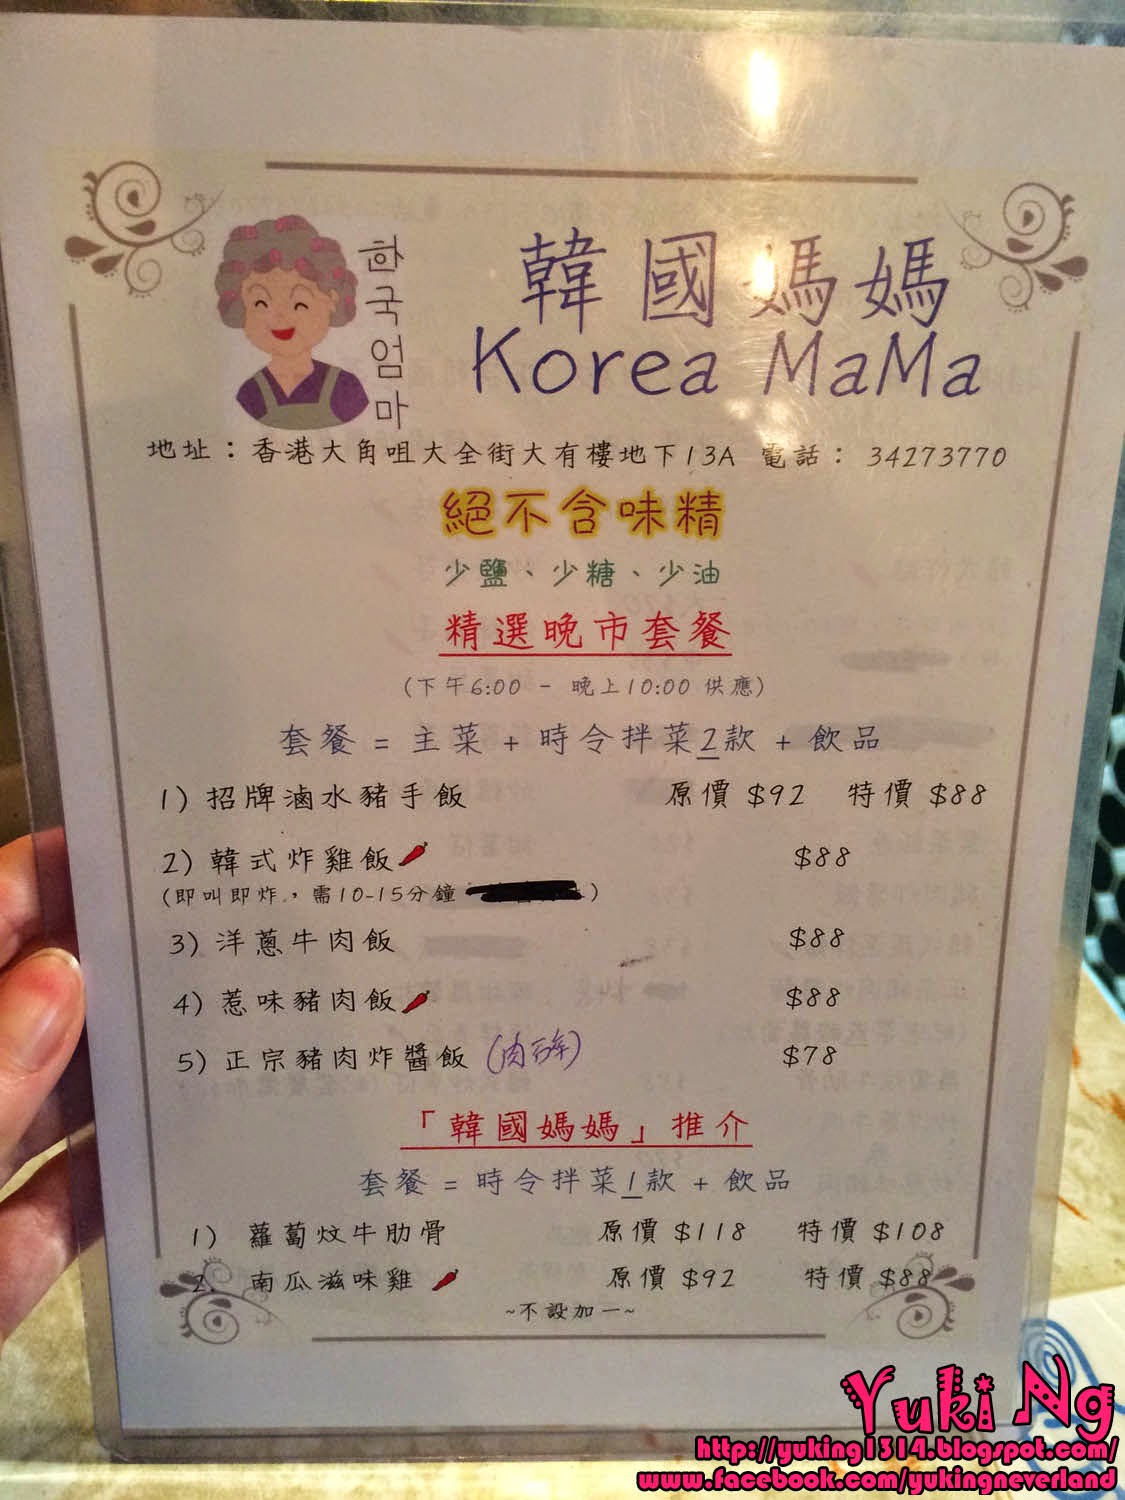 한국엄마
韓國媽媽
Korea MaMa
地址：香港大角咀大全街大有樓地下13A 電話： 34273770
絕不含味精
少鹽、少糖、少油
精選晚市套餐
(下午6:00 - 晚上10:00 供應)
套餐 = 主菜 + 時令拌菜2款 + 飲品
1) 招牌滷水豬手飯 原價 $92 特價 $88
2) 韓式炸雞飯 $88
(即叫即炸，需10-15分鐘 )
3) 洋蔥牛肉飯 $88
4) 惹味豬肉飯 $88
5) 正宗豬肉炸醬飯 (肉碎) $78
「韓國媽媽」推介
套餐 = 時令拌菜1款 + 飲品
1) 蘿蔔炆牛肋骨 原價 $118 特價 $108
2. 南瓜滋味雞 原價 $92 特價 $88
~不設加一~
Yuki Ng
http://yuking1314.blogspot.com/
www.facebook.com/yukingneverland